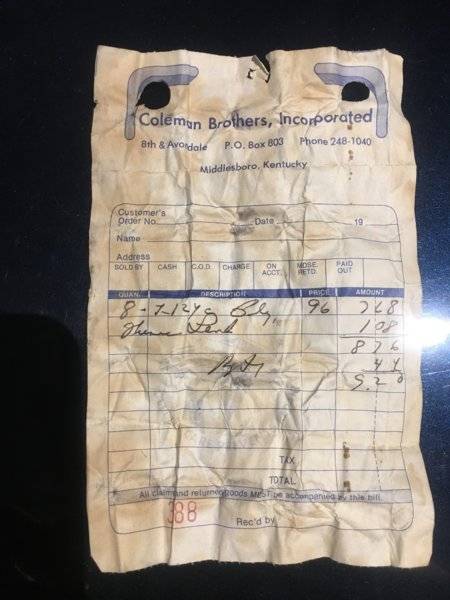 Coleman Brothers, Incorporated
8th & Avondale P.O. Box 803 Phone 248-1040
Middlesboro, Kentucky
Customer's
Order No. Date 19
Name
Address
SOLD BY CASH C.O.D. CHARGE ON ACCT. MDSE. RETD. PAID OUT
QUAN. DESCRIPTION PRICE AMOUNT
8 - 96 768
108
876
44
9.20
TAX
TOTAL
All claims and returned goods MUST be accompanied by this bill.
388 Rec'd by